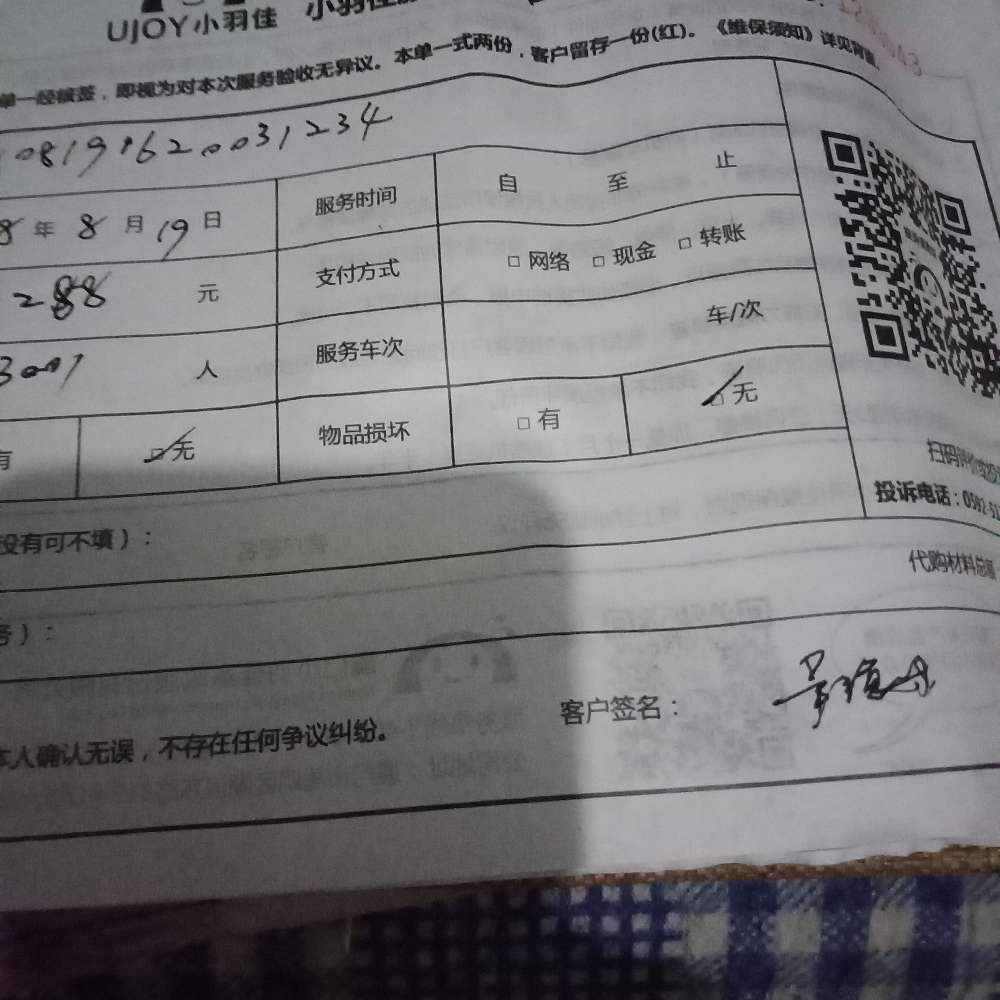 UJOY小羽佳 小羽佳
单一经核签，即视为对本次服务验收无异议。本单一式两份，客户留存一份(红)。《维保须知》详见背面。
08191620031234
8 年 8 月 19 日 服务时间 自 至 止
288 元 支付方式 □ 网络 □ 现金 □ 转账
人 服务车次 车/次
有 □无 物品损坏 □ 有 □无
投诉电话：0592-51
没有可不填）：
代购材料总
务）：
本人确认无误，不存在任何争议纠纷。
客户签名：